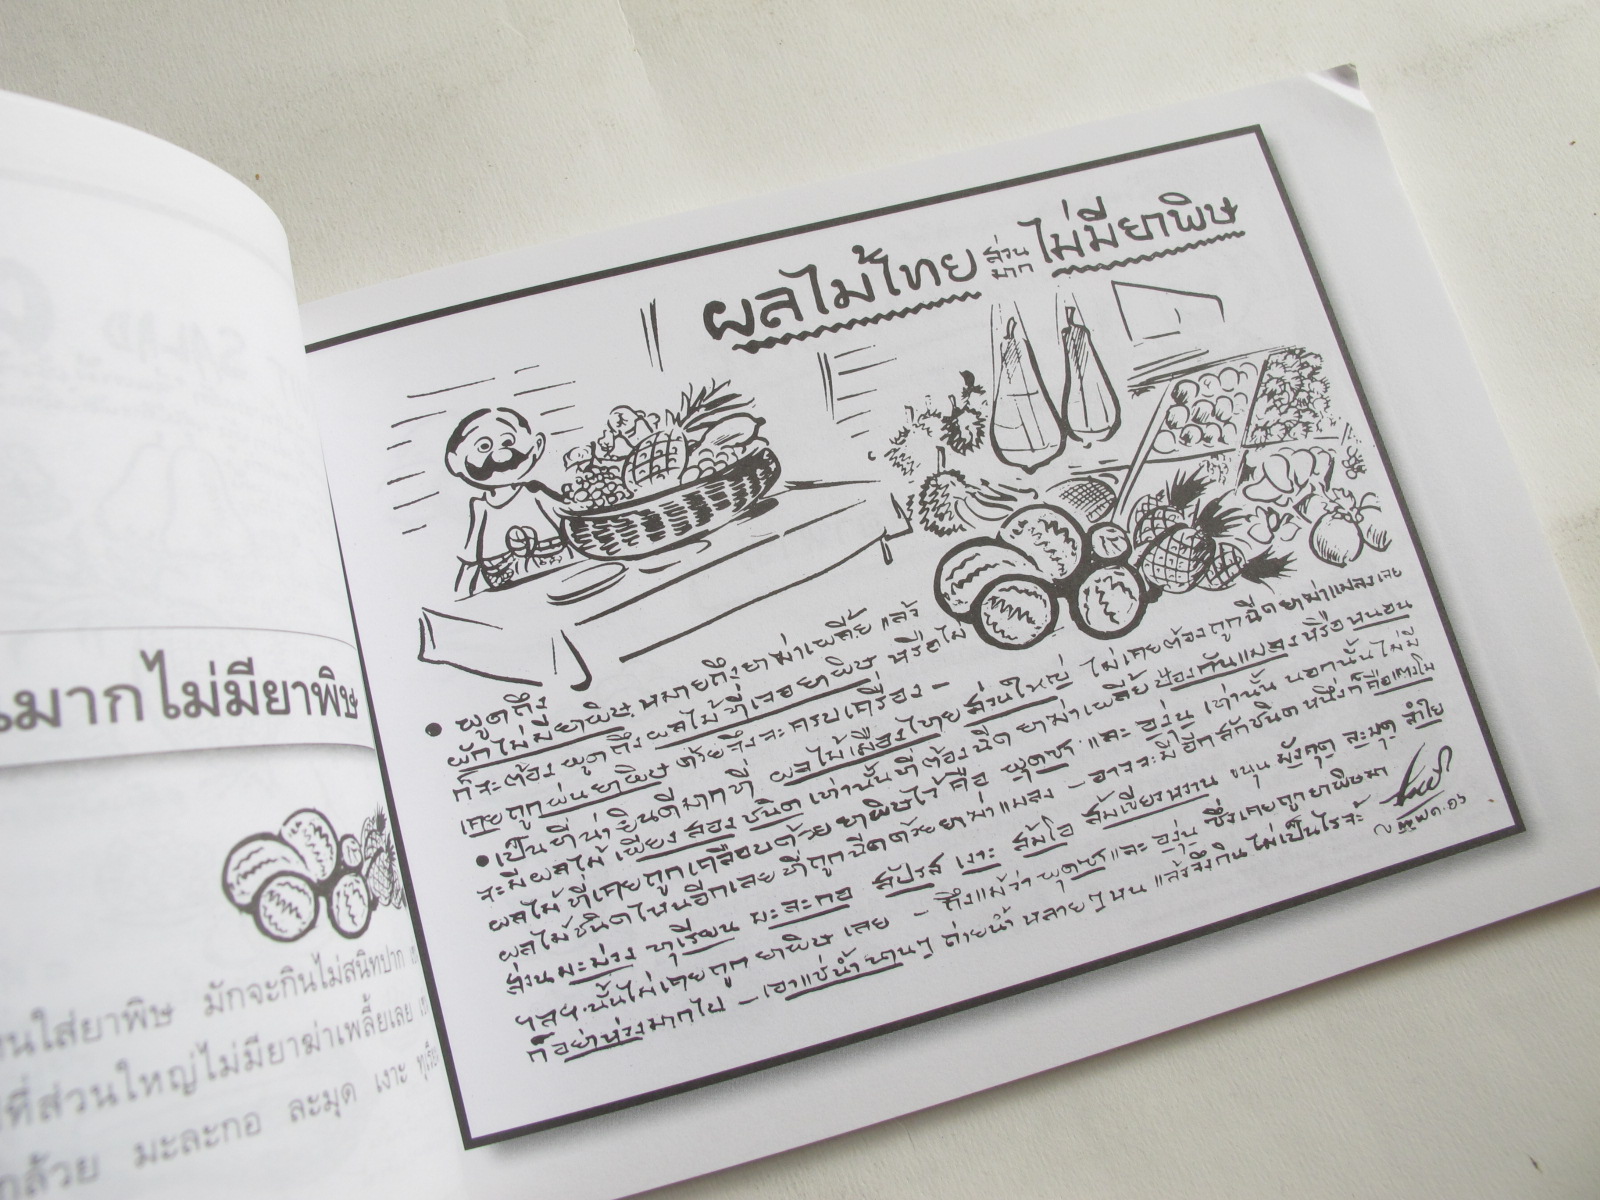 ผลไม้ไทย ส่วนมาก ไม่มียาพิษ
• พูดถึง
ผักไม่มียาพิษ หมายถึงยาฆ่าเพลี้ย แล้ว
ก็จะต้อง พูดถึง ผลไม้ที่เจอยาพิษ หรือไม่
เคยถูกพ่นยาพิษ ด้วยถึงจะครบเครื่อง –
• เป็นที่น่ายินดีมากที่ ผลไม้เมืองไทย ส่วนใหญ่ ไม่เคยต้องถูกฉีดยาฆ่าแมลงเลย
จะมีผลไม้ เพียงสองชนิด เท่านั้นที่ต้องฉีด ยาฆ่าเพลี้ย ป้องกันแมลงหรือหนอน
ผลไม้ที่เคยถูกเคลือบด้วย ยาพิษไว้ คือ พุดซา และ องุ่น เท่านั้น นอกนั้นไม่มี
ผลไม้ชนิดไหนอีกเลย ที่ถูกฉีดด้วยยาฆ่าแมลง – อาจจะมีอีกสักชนิดหนึ่งก็คือแตงโม
ส่วนมะม่วง ทุเรียน มะละกอ สัปรส เงาะ ส้มโอ ส้มเขียวหวาน ขนุน มังคุด ละมุด ลำใย
ฯลฯ. นั้นไม่เคยถูก ยาพิษ เลย – ถึงแม้ว่า พุดซา และ องุ่น ซึ่งเคยถูกยาพิษมา
ก็อย่าห่วงมากไป – เอาแช่น้ำ นานๆ ถ่ายน้ำ หลายๆหน แล้วจึงกิน ไม่เป็นไรจ้ะ
มากไม่มียาพิษ
ใส่ยาพิษ มักจะกินไม่สนิทปาก
ที่ส่วนใหญ่ไม่มียาฆ่าเพลี้ยเลย
กล้วย มะละกอ ละมุด เงาะ